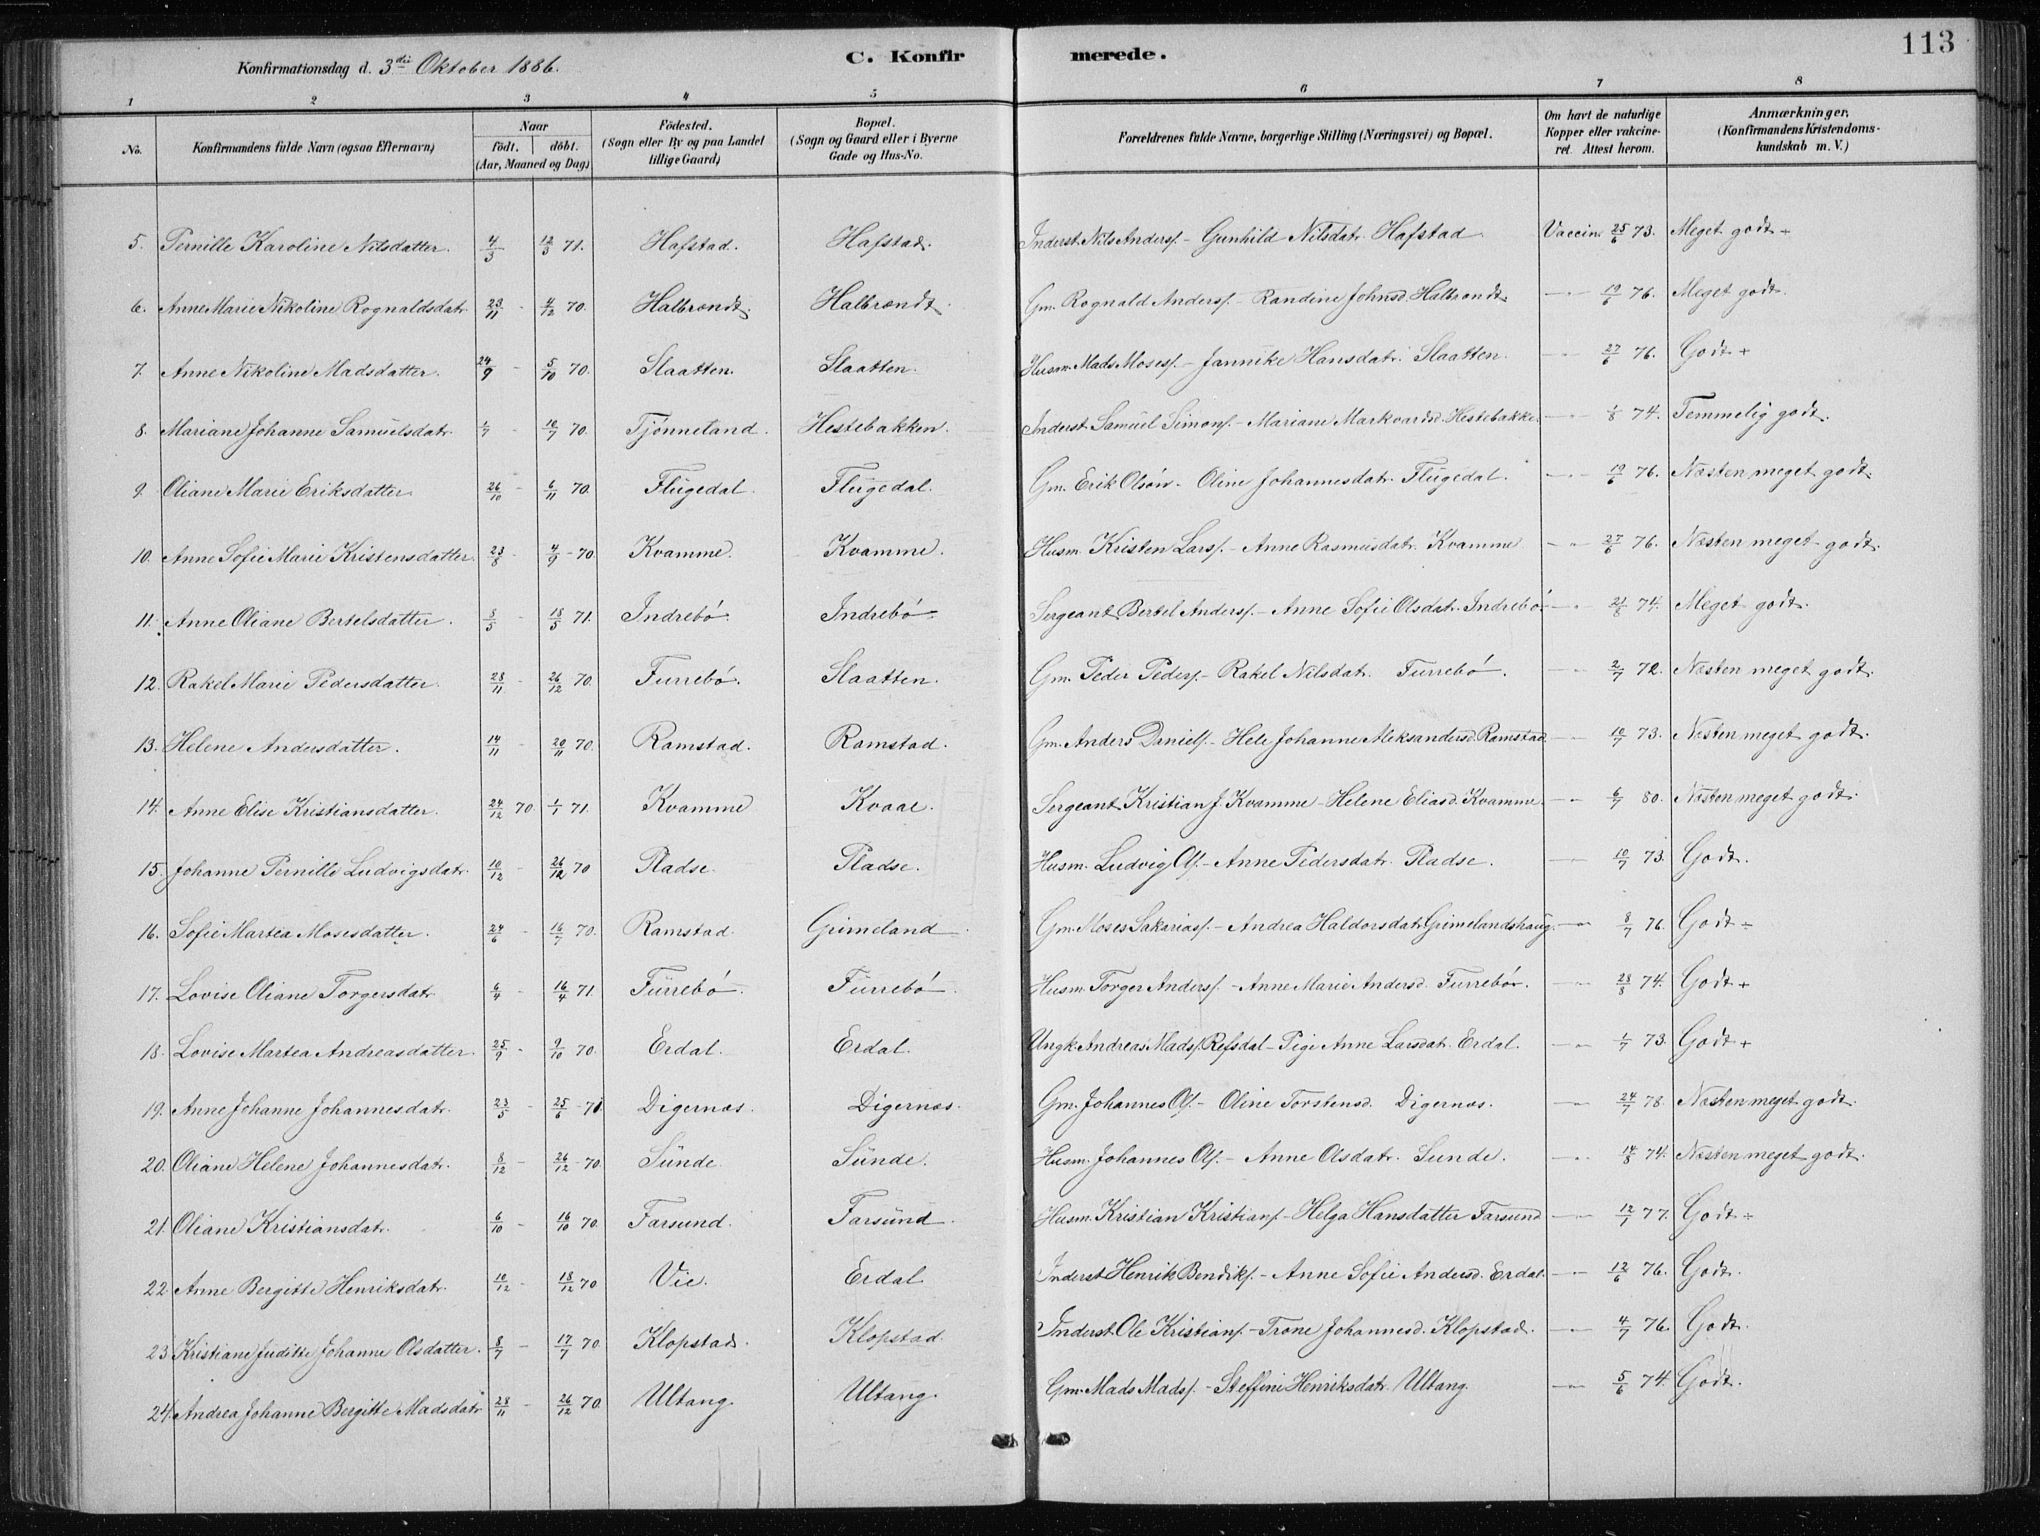 113
Konfirmationsdag d. 3die Oktober 1886.
C. Konfirmerede.
1 2 3 4 5 6 7 8
No. Konfirmandens fulde Navn (ogsaa Efternavn) Naar født. døbt. (Aar, Maaned og Dag) Fødested. (Sogn eller By og paa Landet tillige Gaard) Bopæl. (Sogn og Gaard eller i Byerne Gade og Hus-No. Forældrenes fulde Navne, borgerlige Stilling (Næringsvei) og Bopæl. Om havt de naturlige Kopper eller vakcineret. Attest herom. Anmærkninger, (Konfirmandens Kristendomskundskab m. V.)
5. Pernille Karoline Nilsdatter. 4/3 12/3 71. Hafstad. Hafstad. Inderst. Nils Anders. - Gunhild Nilsdatr. Hafstad Vaccin. 25/6 73. Meget godt ÷
6. Anne Marie Nikoline Rognaldsdatr. 23/11 - 4/12 70. Halbrendt. Halbrendt. Gm. Rognald Anders. - Randine Johnsd. Halbrendt. -"- 19/6 76. Meget godt.
7. Anne Nikoline Madsdatter. 24/9 - 5/10 70. Slaatten. Slaatten. Husm. Mads Moses. - Jannike Hansdatr. Slaatten. -"- 27/6 76. Godt +
8. Mariane Johanne Samuelsdatr. 1/7 - 10/7 70. Tjønneland. Hestebakken. Inderst. Samuel Simons. - Mariane Markvardsd. Hestebakke. -"- 1/8 74. Temmelig godt.
9. Oliane Marie Eriksdatter. 26/10 - 6/11 70. Flugedal. Flugedal. Gm. Erik Olsøn. - Oline Johannesdatr. Flugedal. -"- 19/6 76. Næsten meget godt.
10. Anne Sofie Marie Kristensdatter. 23/8 - 4/9 - 70. Kvamme. Kvamme. Husm. Kristen Lars. - Anne Rasmusdatr. Kvamme -"- 27/6 76. Næsten meget godt.
11. Anne Oliane Bertelsdatter. 8/5 - 18/5 71. Indrebø. Indrebø. Sergeant Bertel Anders. - Anne Sofie Olsdatr. Indrebø. -"- 21/8 74. Meget godt.
12. Rakel Marie Pedersdatter. 28/11 - 26/12 70. Furrebø. Slaatten. Gm. Peder Peders. - Rakel Nilsdatr. Furrebø. -"- 2/7 72. Næsten meget godt.
13. Helene Andersdatter. 14/11 - 20/11 70. Ramstad. Ramstad. Gm. Anders Daniels. - Hele Johanne Aleksandersd. Ramstad. -"- 10/7 73. Næsten meget godt.
14. Anne Elise Kristiansdatter. 24/12 70. 1/1 71. Kvamme Kvaal. Sergeant Kristian J. Kvamme - Helene Eliasd. Kvamme. -"- 6/7 80. Næsten meget godt.
15. Johanne Pernille Ludvigsdatr. 10/12 - 26/12 70 Pladse. Pladse. Husm. Ludvig Ols. - Anne Pedersdatr. Pladse. -"- 10/7 73. Godt.
16. Sofie Martea Mosesdatter. 24/6 - 16/7 70. Ramstad. Grimeland. Gm. Moses Sakarias. - Andrea Haldorsdatr. Grimelandshaug. -"- 8/7 76. Godt ÷
17. Lovise Oliane Torgersdatr. 6/4 - 16/4 71. Furrebø. Furrebø. Husm. Torger Anders. - Anne Marie Andersd. Furrebø. -"- 28/8 74. Godt +
18. Lovise Martea Andreasdatter. 25/9 - 9/10 70. Erdal. Erdal. Ungk. Andreas Mads. Refsdal - Pige Anne Larsdatr. Erdal. -"- 1/7 73. Godt +
19. Anne Johanne Johannesdatr. 23/5 - 25/6 - 71 Digernæs. Digernæs. Gm. Johannes Ols. - Oline Torstensd. Digernæs. -"- 24/7 78. Næsten meget godt.
20. Oliane Helene Johannesdatr. 8/12 - 26/12 - 70. Sunde. Sunde. Husm. Johannes Ols. - Anne Olsdatr. Sunde. -"- 14/8 74. Næsten meget godt.
21. Oliane Kristiansdatr. 6/10 - 16/10 70. Farsund. Farsund. Husm. Kristian Kristians. - Helga Hansdatter Farsund -"- 12/7 77. Godt ÷
22. Anne Bergitte Henriksdatr. 10/12 - 18/12 70 Vie. Erdal. Inderst. Henrik Bendiks. - Anne Sofie Andersd. Erdal. -"- 12/6 76. Godt.
23. Kristiane Juditte Johanne Olsdatter. 8/7 - 17/7 70. Klopstad. Klopstad. Inderst. Ole Kristians. - Trone Johannesd. Klopstad. -"- 4/7 76. Godt.
24. Andrea Johanne Bergitte Madsdatr. 28/11 - 26/12 70. Ultang. Ultang. Gm. Mads Mads. - Steffine Henriksdatr. Ultang. -"- 5/6 74. Godt.